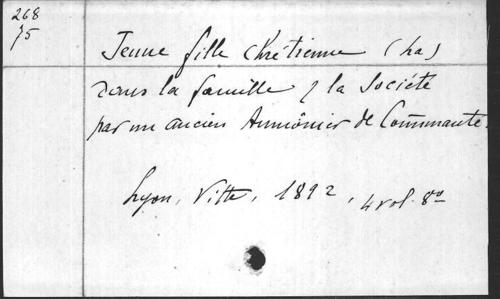 268
75
Jeune fille chrétienne (La)
dans la famille & la Société
par un ancien Aumônier de Communauté.
Lyon, Vitte, 1892, 4 vol. 8º